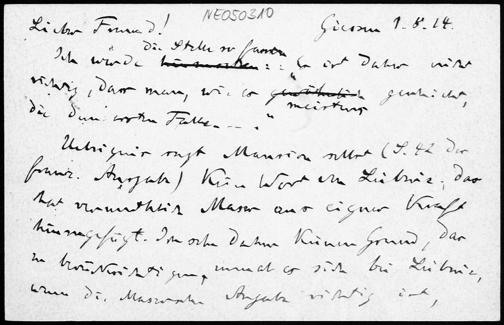 NE050310
Lieber Freund! Giessen 1.8.14.
die Stelle so fassen
Ich würde : „Es ist daher nicht
richtig, dass man, wie es gewöhnlich geschieht,
meistens
die drei ersten Fälle - - - "
Übrigens sagt Mansion selbst (S. 42 der
franz. Ausgabe) kein Wort von Leibniz, das
hat vermuthlich Maser aus eigner Kraft
hinzugefügt. Ich sehe daher keinen Grund, das
zu berücksichtigen, zumal es sich bei Leibniz,
wenn die Masersche Angabe richtig ist,